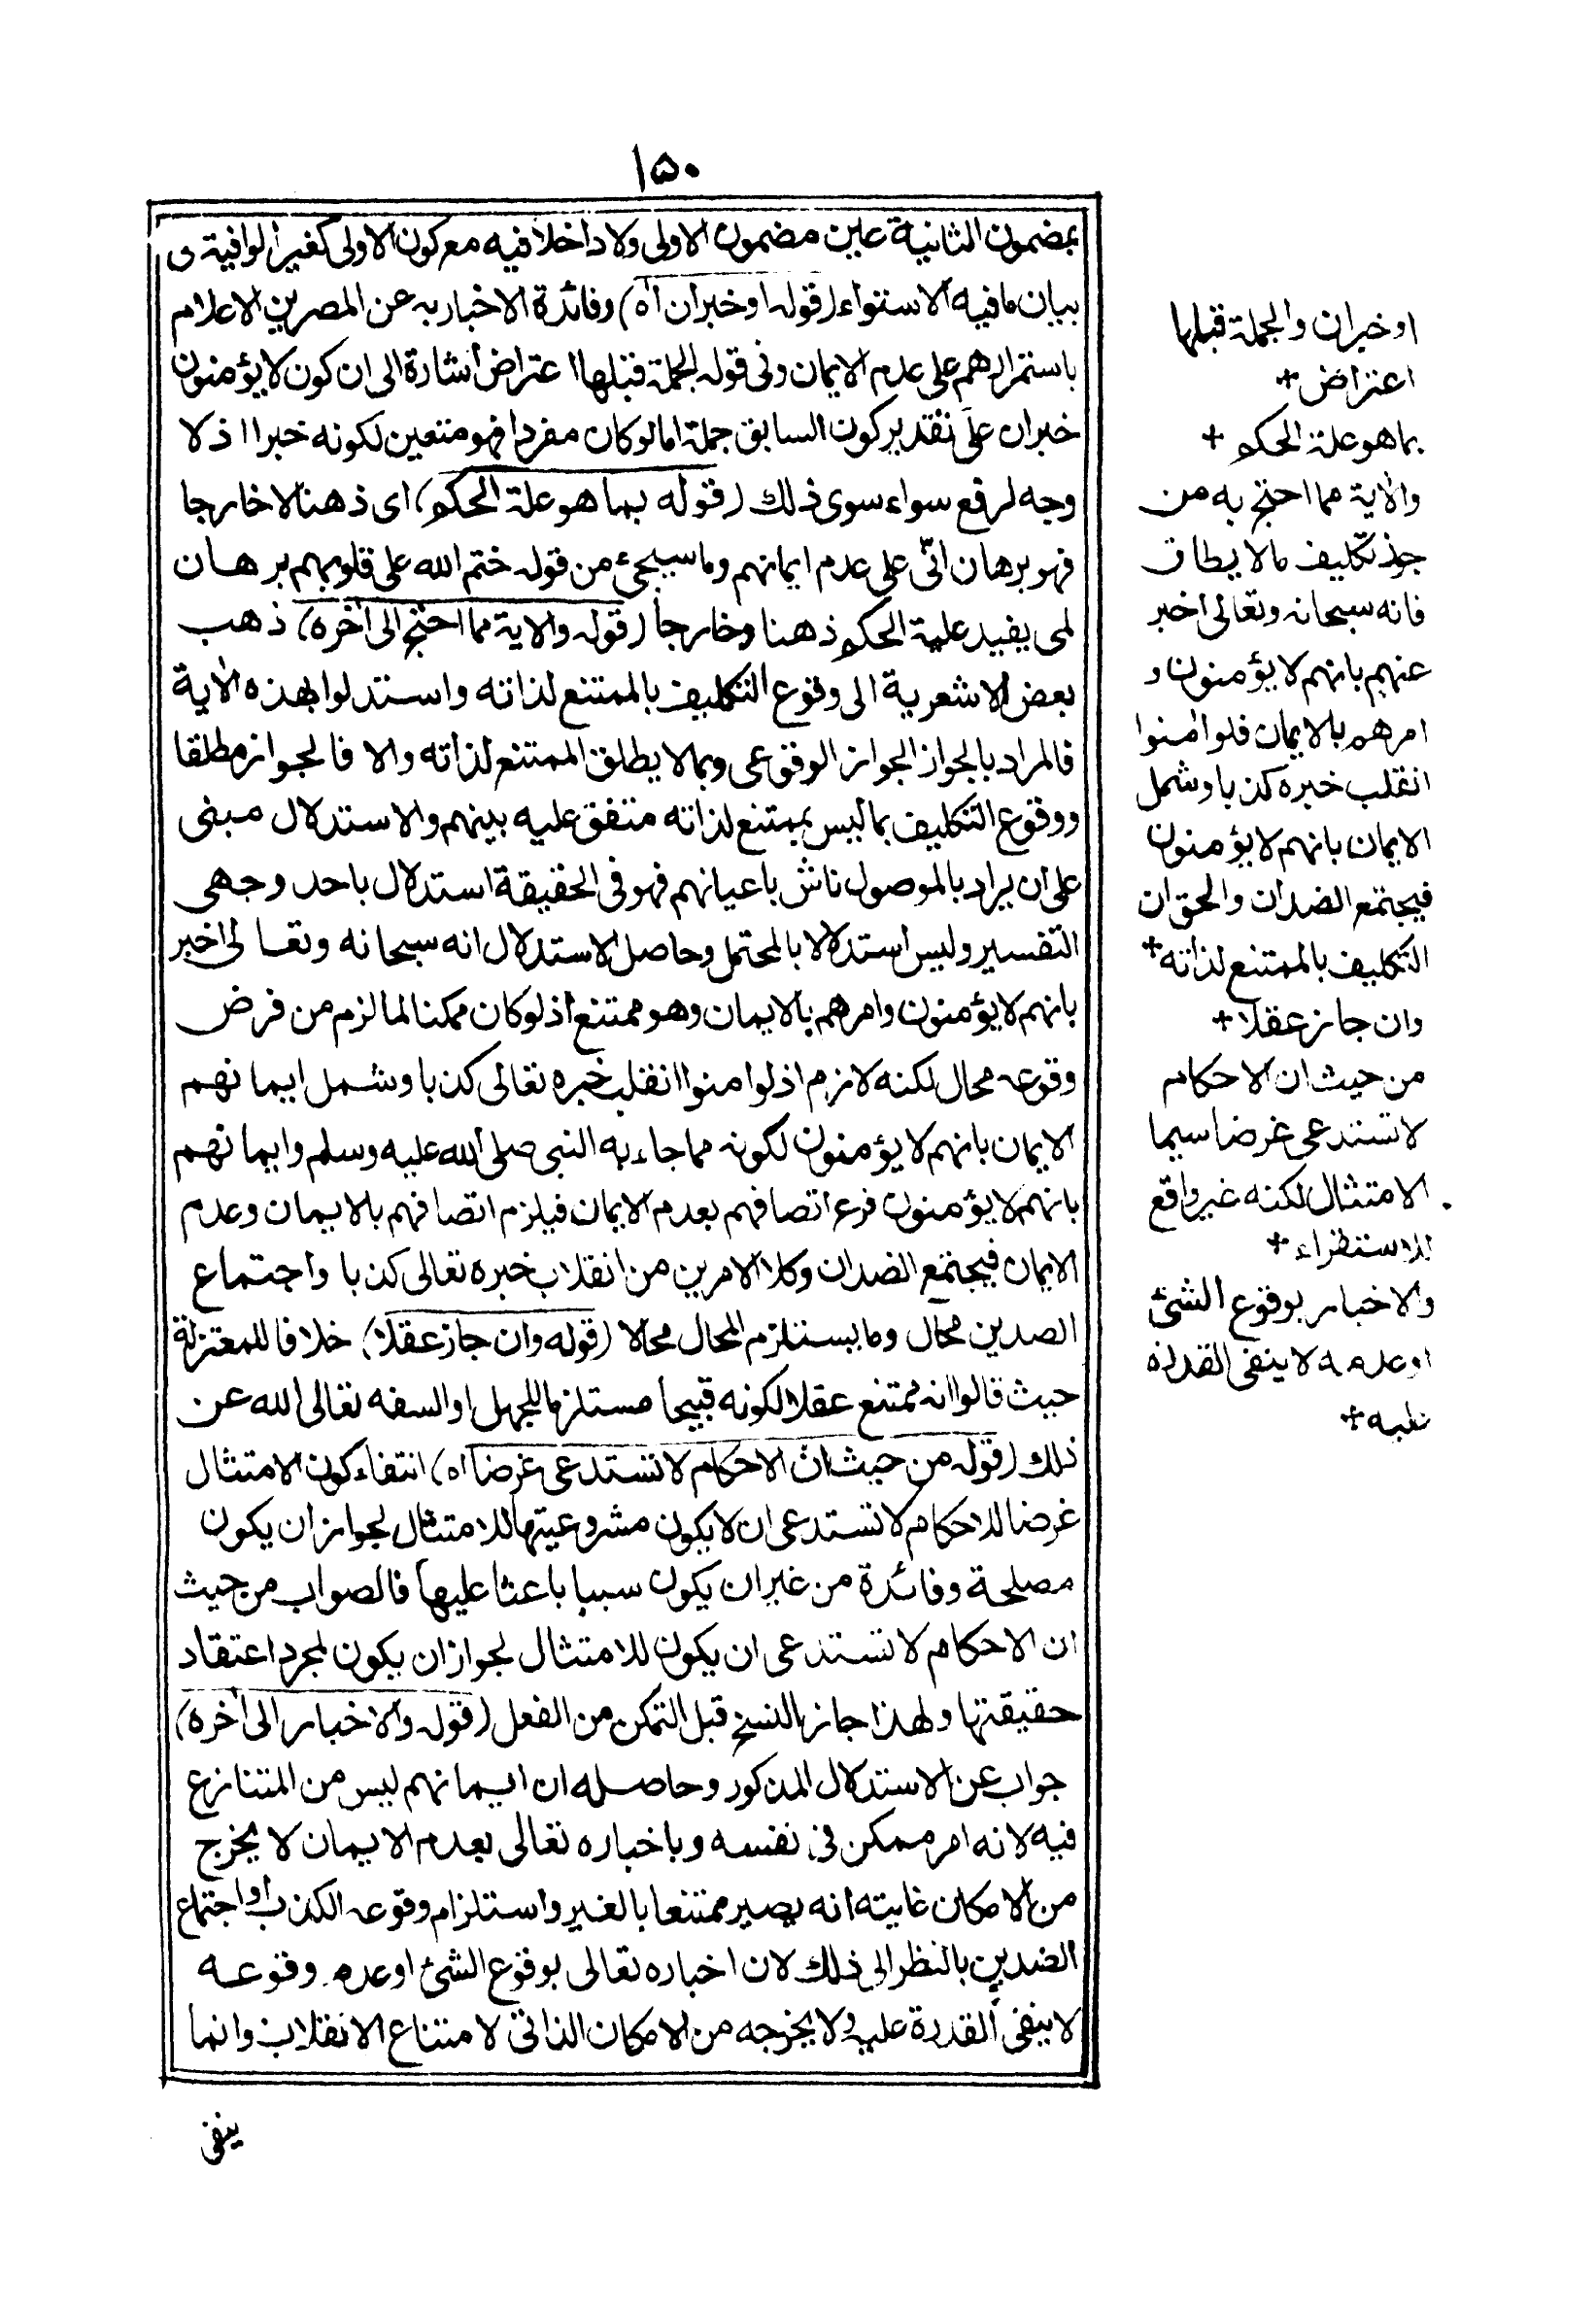 ۱۵۰
بمضمون الثانية عين مضمون الاولى ولا داخلا فيه مع كون الاولى كغير الوافية ى
ببيان ما فيه الاستواء (قوله او خبر ان اه) وفائدة الاخبار به عن المصرين الاعلام
باستمرارهم على عدم الايمان وفى قوله الجملة قبلها اعتراض اشارة الى ان كون لا يؤمنون
خبر ان على تقدير كون السابق جملة اما لو كان مفردا فهو متعين لكونه خبرا اذ لا
وجه لرفع سواء سوى ذلك (قوله بما هو علة الحكم) اى ذهنا لا خارجا
فهو برهان انّى على عدم ايمانهم وما سيجئ من قوله ختم الله على قلوبهم برهان
لمى يفيد علية الحكم ذهنا وخارجا (قوله والاية مما احتج الى اخره) ذهب
بعض الاشعرية الى وقوع التكليف بالممتنع لذاته واستدلوا بهذه الاية
فالمراد بالجواز الجواز الوقوعى وبما لا يطلق الممتنع لذاته والا فالجواز مطلقا
ووقوع التكليف بما ليس بممتنع لذاته متفق عليه بينهم والاستدلال مبنى
على ان يراد بالموصول ناس باعيانهم فهو فى الحقيقة استدلال باحد وجهى
التفسير وليس استدلالا بالمحتمل وحاصل الاستدلال انه سبحانه وتعالى اخبر
بانهم لا يؤمنون وامرهم بالايمان وهو ممتنع اذ لو كان ممكنا لما لزم من فرض
وقوعه محال لكنه لازم اذ لو امنوا انقلب خبره تعالى كذبا وشمل ايمانهم
الايمان بانهم لا يؤمنون لكونه مما جاء به النبى صلى الله عليه وسلم وايمانهم
بانهم لا يؤمنون فرع اتصافهم بعدم الايمان فيلزم اتصافهم بالايمان وعدم
الايمان فيجتمع الضدان وكلا الامرين من انقلاب خبره تعالى كذبا واجتماع
الصدين محال وما يستلزم المحال محالا (قوله وان جاز عقلا) خلافا للمعتزلة
حيث قالوا انه ممتنع عقلا لكونه قبيحا مستلزما للجهل او السفه تعالى الله عن
ذلك (قوله من حيث ان الاحكام لا تستدعى غرضا اه) انتفاء كون الامتثال
غرضا للاحكام لا تستدعى ان لا يكون مشروعيتها للامتثال لجواز ان يكون
مصلحة وفائدة من غير ان يكون سببا باعثا عليها فالصواب من حيث
ان الاحكام لا تستدعى ان يكون للامتثال لجواز ان يكون لمجرد اعتقاد
حقيقتها ولهذا جاز النسخ قبل التمكن من الفعل (قوله والاخبار الى اخره)
جواب عن الاستدلال المذكور وحاصله ان ايمانهم ليس من المتنازع
فيه لانه امر ممكن فى نفسه وباخباره تعالى بعدم الايمان لا يخرج
من الامكان غايته انه يصير ممتنعا بالغير واستلزام وقوعه الكذب او اجتماع
الضدين بالنظر الى ذلك لان اخباره تعالى بوقوع الشئ او عدم وقوعه
لا ينفى القدرة عليه ولا يخرجه من الامكان الذاتى لامتناع الانقلاب وانما
ينفى
او خبر ان والجملة قبلها
اعتراض+
بما هو علة الحكم +
والاية مما احتج به من
جوز تكليف ما لا يطاق
فانه سبحانه وتعالى اخبر
عنهم بانهم لا يؤمنون و
امرهم بالايمان فلو امنوا
انقلب خبره كذبا وشمل
الايمان بانهم لا يؤمنون
فيجتمع الضدان والحق ان
التكليف بالممتنع لذاته+
وان جاز عقلا+
من حيث ان الاحكام
لا تستدعى غرضا سيما
الامتثال لكنه غير واقع
للاستقراء +
والاخبار بوقوع الشئ
او عدمه لا ينفى القدرة
عليه+